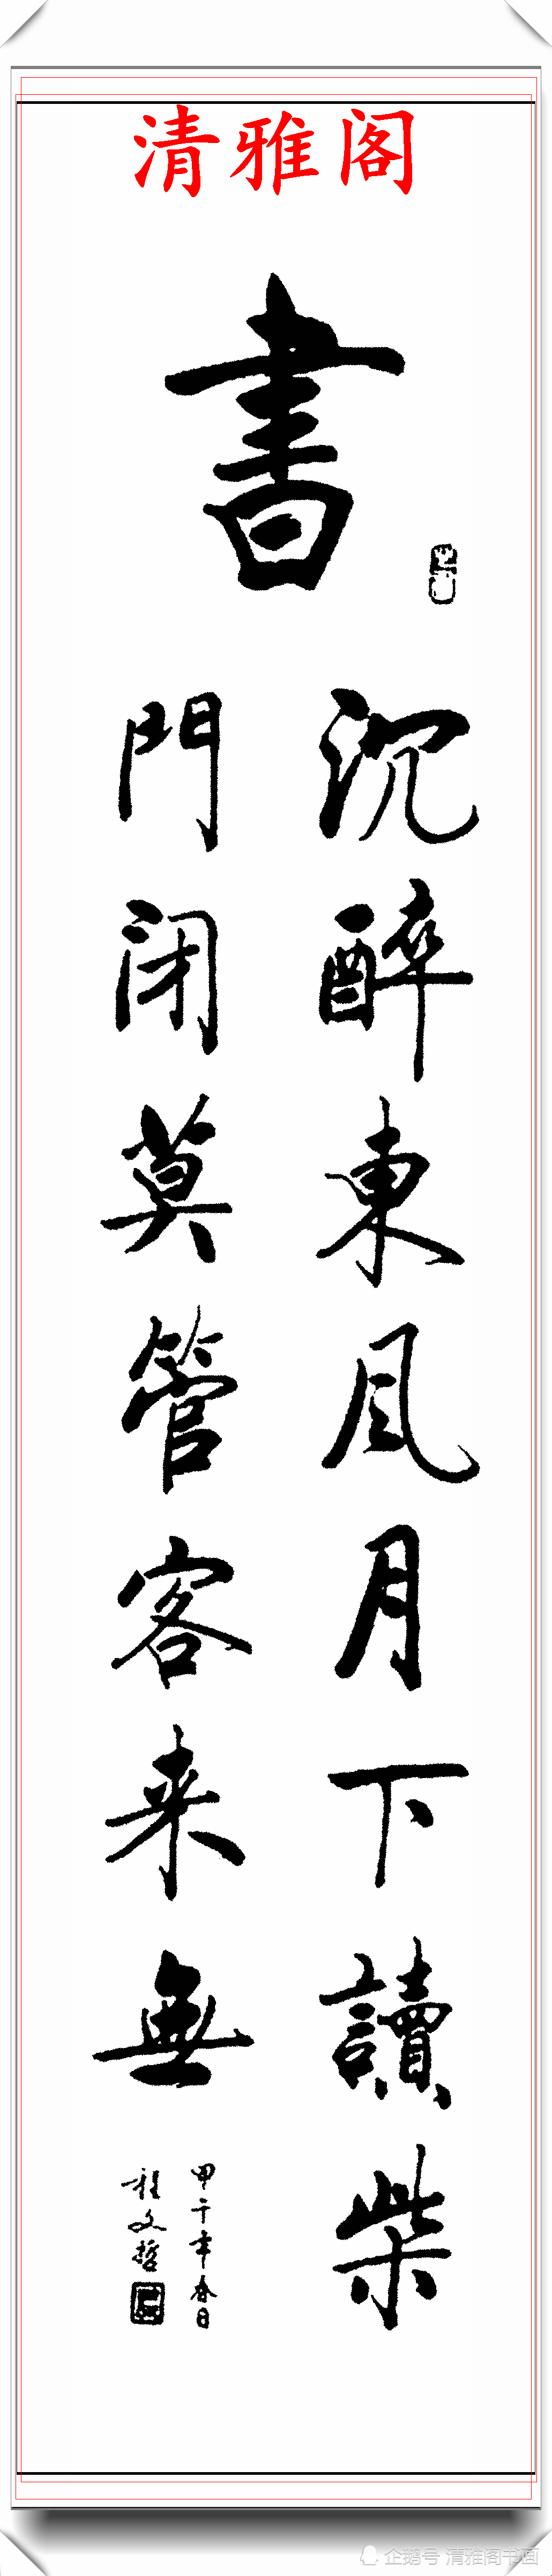 清雅阁
書
沉醉東風月下讀柴
門闭莫管客来無
甲午年春日
程文哲
企鹅号 清雅阁书画